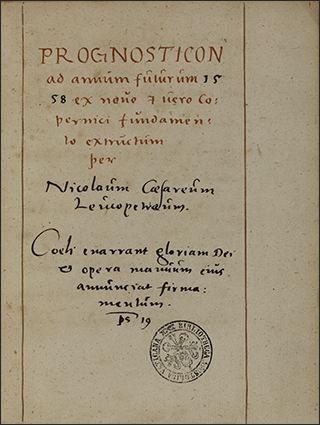 PROGNOSTICON
ad annum futurum 15
58 ex novo & vero Co-
pernici fundamen-
to extructum
per
Nicolaum Cæsareum
Leucopetræum.
Coeli enarrant gloriam Dei
& opera manuum eius
annunciat firma:
mentum.
ps 19
BIBLIOTHECA
VATICANA